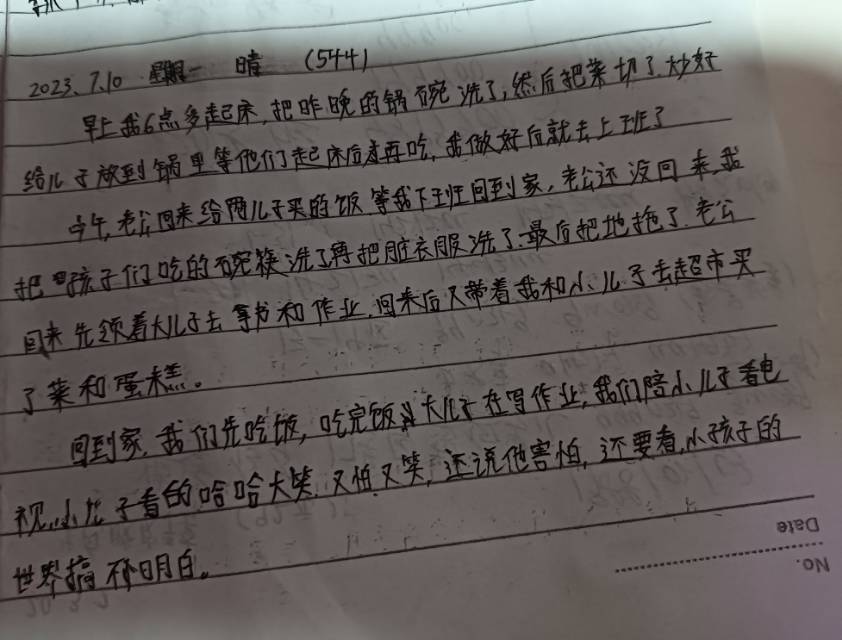 2023.7.10 星期一 晴 (544)
早上我6点多起床,把昨晚的锅碗洗了,然后把菜切了,炒好
给儿子放到锅里等他们起床后再吃,我做好后就去上班了
中午,老公回来给两儿子买的饭,等我下班回到家,老公还没回来,我
把孩子们吃的碗筷洗了再把脏衣服洗了.最后把地拖了.老公
回来先领着大儿子去拿书和作业.回来后又带着我和小儿子去超市买
了菜和蛋糕。
回到家,我们先吃饭,吃完饭大儿子在写作业,我们陪小儿子看电
视,小儿子看的哈哈大笑.又怕又笑,还说他害怕,还要看,小孩子的
世界搞不明白。
Date
No.